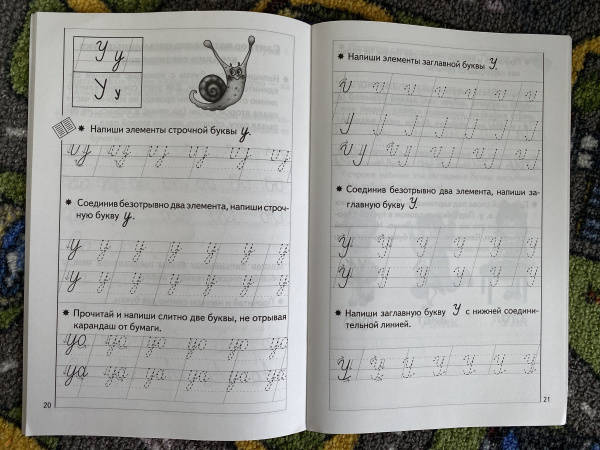 У у
У у
Напиши элементы строчной буквы у.
Соединив безотрывно два элемента, напиши строч-
ную букву у.
у у у у у у
у у у у у у
Прочитай и напиши слитно две буквы, не отрывая
карандаш от бумаги.
уо уо уо уо уо уо
уа уа уа уа уа уа
20
Напиши элементы заглавной буквы У.
Соединив безотрывно два элемента, напиши за-
главную букву У.
У У У У У У
У У У У У У
Напиши заглавную букву У с нижней соедини-
тельной линией.
У У У У У У У
21